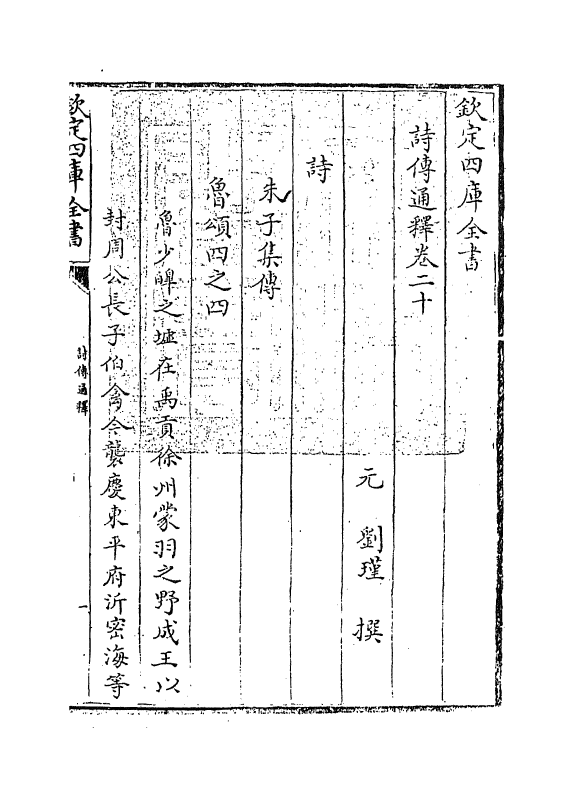 欽定四庫全書
詩傳通釋卷二十
元 劉瑾 撰
詩
朱子集傳
魯頌四之四
魯少皥之墟在禹貢徐州蒙羽之野成王以
封周公長子伯禽今襲慶東平府沂密海等
欽定四庫全書
詩傳通釋
一